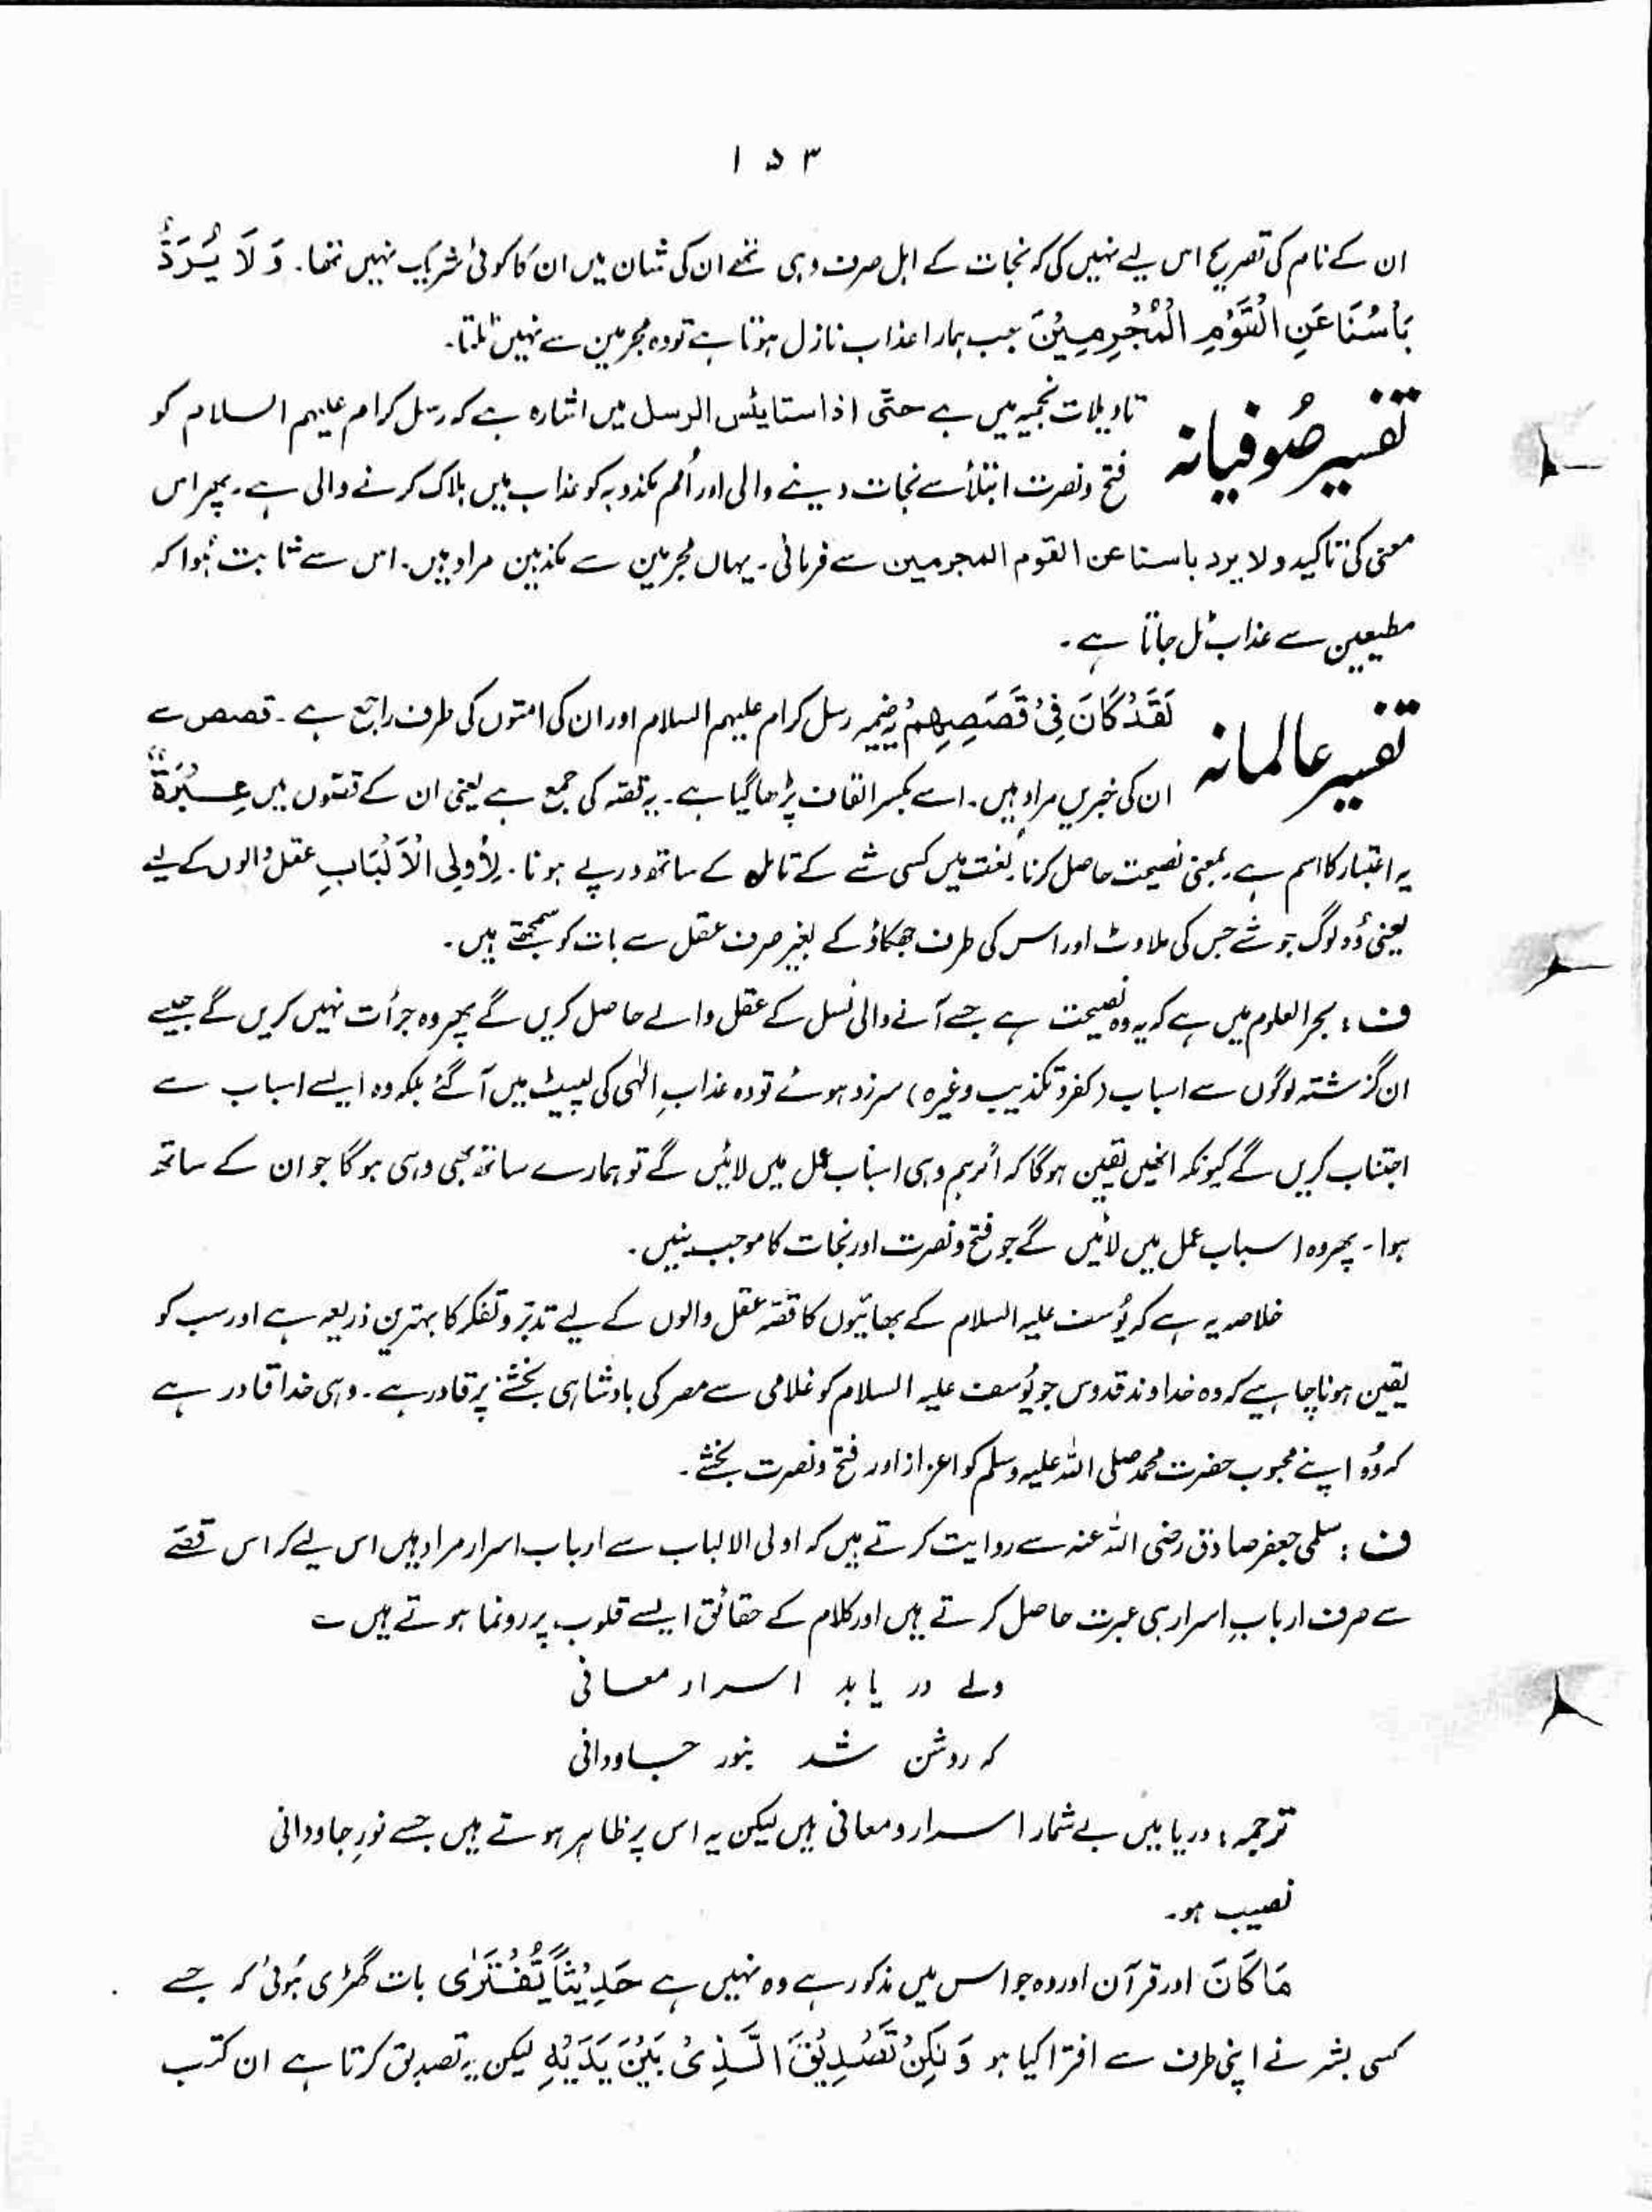 ۱۵۳
ان کے نام کی تصریح اس لیے نہیں کی کہ نجات کے اہل صرف وہی تھے ان کی شان میں ان کا کوئی شریک نہیں تھا۔ وَلَا یُرَدُّ
بَأْسُنَا عَنِ الْقَوْمِ الْمُجْرِمِیْنَ جب ہمارا عذاب نازل ہوتا ہے تو وہ مجرمین سے نہیں ٹلتا۔
تفسیر صُوفیانہ
تاویلات نجمیہ میں ہے حتّٰی اذا استایئس الرسل میں اشارہ ہے کہ رسل کرام علیہم السلام کو
فتح و نصرت ابتلأ سے نجات دینے والی اور اُمم مکذوبہ کو عذاب میں ہلاک کرنے والی ہے۔ پھر اس
معنی کی تاکید ولا یرد باسنا عن القوم المجرمین سے فرمائی۔ یہاں مجرمین سے مکذبین مراد ہیں۔ اس سے ثابت ہُوا کہ
مطیعین سے عذاب ٹل جاتا ہے۔
تفسیر عالمانہ
لَقَدْ کَانَ فِیْ قَصَصِهِمْ یہ ضمیر رسل کرام علیہم السلام اور ان کی امتوں کی طرف راجع ہے۔ قصص سے
ان کی خبریں مراد ہیں۔ اسے بکسر القاف پڑھا گیا ہے۔ یہ قصّہ کی جمع ہے یعنی ان کے قصّوں میں عِبْرَةٌ
یہ اعتبار کا اسم ہے بمعنی نصیحت حاصل کرنا لغت میں کسی شے کے تامل کے ساتھ درپے ہونا۔ لِأُولِی الْاَلْبَابِ عقل والوں کے لیے
یعنی وُہ لوگ جو شے جس کی ملاوٹ اور اس کی طرف جھکاؤ کے بغیر صرف عقل سے بات کو سمجھتے ہیں۔
ف : بحر العلوم میں ہے کہ یہ وہ نصیحت ہے جسے آنے والی نسل کے عقل والے حاصل کریں گے پھر وہ جرأت نہیں کریں گے جیسے
ان گزشتہ لوگوں سے اسباب (کفر و تکذیب وغیرہ) سرزد ہوئے تو وہ عذابِ الٰہی کی لپیٹ میں آ گئے بلکہ وہ ایسے اسباب سے
اجتناب کریں گے کیونکہ انھیں یقین ہوگا کہ اگر ہم وہی اسباب عمل میں لائیں گے تو ہمارے ساتھ بھی وہی ہوگا جو ان کے ساتھ
ہوا۔ پھر وہ اسباب عمل میں لائیں گے جو فتح و نصرت اور نجات کا موجب بنیں۔
خلاصہ یہ ہے کہ یُوسف علیہ السلام کے بھائیوں کا قصّہ عقل والوں کے لیے تدبّر و تفکر کا بہترین ذریعہ ہے اور سب کو
یقین ہونا چاہیے کہ وہ خداوند قدوس جو یُوسف علیہ السلام کو غلامی سے مصر کی بادشاہی بخشنے پر قادر ہے۔ وہی خدا قادر ہے
کہ وُہ اپنے محبوب حضرت محمد صلی اللہ علیہ وسلم کو اعزاز اور فتح و نصرت بخشے۔
ف : سلمی جعفر صادق رضی اللہ عنہ سے روایت کرتے ہیں کہ اولی الالباب سے ارباب اسرار مراد ہیں اس لیے کہ اس قصّے
سے صرف اربابِ اسرار ہی عبرت حاصل کرتے ہیں اور کلام کے حقائق ایسے قلوب پر رونما ہوتے ہیں ؎
ولے در یابد اسرار معانی
کہ روشن شد بنور جاودانی
ترجمہ : دریا میں بے شمار اسرار و معانی ہیں لیکن یہ اس پر ظاہر ہوتے ہیں جسے نورِ جاودانی
نصیب ہو۔
مَا کَانَ اور قرآن اور وہ جو اس میں مذکور ہے وہ نہیں ہے حَدِیْثًا یُّفْتَرٰی بات گھڑی ہُوئی کہ جسے
کسی بشر نے اپنی طرف سے افترا کیا ہو وَلٰکِنْ تَصْدِیْقَ الَّذِیْ بَیْنَ یَدَیْهِ لیکن یہ تصدیق کرتا ہے ان کتب